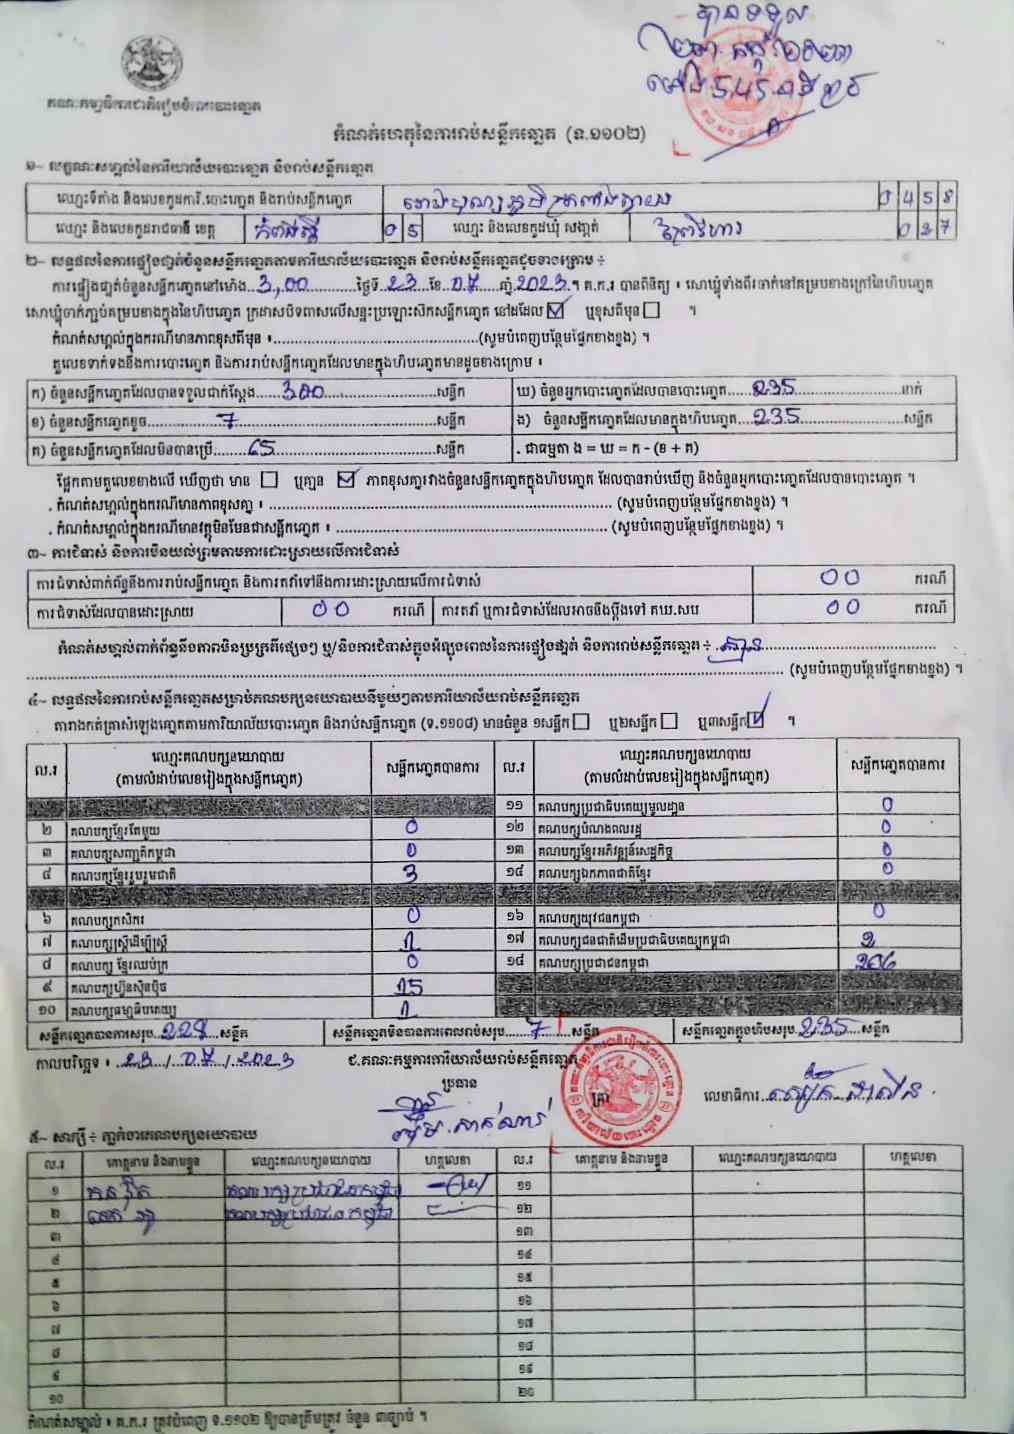 បានទទួល
គណៈកម្មាធិការជាតិរៀបចំការបោះឆ្នោត
កំណត់ហេតុនៃការរាប់សន្លឹកឆ្នោត (ទ.១១០២)
១~ លក្ខណៈសម្គាល់នៃការិយាល័យបោះឆ្នោត និងរាប់សន្លឹកឆ្នោត
ឈ្មោះទីតាំង និងលេខកូដការិ.បោះឆ្នោត និងរាប់សន្លឹកឆ្នោត 0458
ឈ្មោះ និងលេខកូដរាជធានី ខេត្ត កំពង់ស្ពឺ 05 ឈ្មោះ និងលេខកូដឃុំ សង្កាត់ ព្រៃវិហារ 037
២~ លទ្ធផលនៃការផ្ទៀងផ្ទាត់ចំនួនសន្លឹកឆ្នោតតាមការិយាល័យបោះឆ្នោត និងរាប់សន្លឹកឆ្នោតដូចខាងក្រោម ៖
ការផ្ទៀងផ្ទាត់ចំនួនសន្លឹកឆ្នោតនៅម៉ោង 3,00 ថ្ងៃទី 23 ខែ 07 ឆ្នាំ 2023 ។ គ.ក.រ បានពិនិត្យ ៖ សោឃ្លុំទាំងពីរចាក់នៅគម្របខាងក្រៅនៃហិបឆ្នោត
សោឃ្លុំចាក់ភ្ជាប់គម្របខាងក្នុងនៃហិបឆ្នោត ក្រដាសបិទពាសលើសន្ទះប្រឡោះសិកសន្លឹកឆ្នោត នៅដដែល ☑ ឬខុសពីមុន ☐ ។
កំណត់សម្គាល់ក្នុងករណីមានភាពខុសពីមុន ៖ (សូមបំពេញបន្ថែមផ្នែកខាងខ្នង) ។
តួលេខទាក់ទងនឹងការបោះឆ្នោត និងការរាប់សន្លឹកឆ្នោតដែលមានក្នុងហិបឆ្នោតមានដូចខាងក្រោម ៖
ក) ចំនួនសន្លឹកឆ្នោតដែលបានទទួលជាក់ស្តែង 300 សន្លឹក ឃ) ចំនួនអ្នកបោះឆ្នោតដែលបានបោះឆ្នោត 235 នាក់
ខ) ចំនួនសន្លឹកឆ្នោតខូច 7 សន្លឹក ង) ចំនួនសន្លឹកឆ្នោតដែលមានក្នុងហិបឆ្នោត 235 សន្លឹក
គ) ចំនួនសន្លឹកឆ្នោតដែលមិនបានប្រើ 65 សន្លឹក . ជាធម្មតា ង = ឃ = ក - (ខ + គ)
ផ្អែកតាមតួលេខខាងលើ ឃើញថា មាន ☐ ឬគ្មាន ☑ ភាពខុសគ្នារវាងចំនួនសន្លឹកឆ្នោតក្នុងហិបឆ្នោត ដែលបានរាប់ឃើញ និងចំនួនអ្នកបោះឆ្នោតដែលបានបោះឆ្នោត ។
. កំណត់សម្គាល់ក្នុងករណីមានភាពខុសគ្នា ៖ (សូមបំពេញបន្ថែមផ្នែកខាងខ្នង) ។
. កំណត់សម្គាល់ក្នុងករណីមានវត្ថុមិនមែនជាសន្លឹកឆ្នោត ៖ (សូមបំពេញបន្ថែមផ្នែកខាងខ្នង) ។
៣~ ការជំទាស់ និងការមិនយល់ព្រមតាមការដោះស្រាយលើការជំទាស់
ការជំទាស់ពាក់ព័ន្ធនឹងការរាប់សន្លឹកឆ្នោត និងការតវ៉ាទៅនឹងការដោះស្រាយលើការជំទាស់ 00 ករណី
ការជំទាស់ដែលបានដោះស្រាយ 00 ករណី ការតវ៉ា ឬការជំទាស់ដែលអាចនឹងប្តឹងទៅ គឃ.សប 00 ករណី
កំណត់សម្គាល់ពាក់ព័ន្ធនឹងភាពមិនប្រក្រតីផ្សេងៗ ឬ/និងការជំទាស់ក្នុងអំឡុងពេលនៃការផ្ទៀងផ្ទាត់ និងការរាប់សន្លឹកឆ្នោត ៖ គ្មាន
(សូមបំពេញបន្ថែមផ្នែកខាងខ្នង) ។
៤~ លទ្ធផលនៃការរាប់សន្លឹកឆ្នោតសម្រាប់គណបក្សនយោបាយនីមួយៗតាមការិយាល័យរាប់សន្លឹកឆ្នោត
តារាងកត់ត្រាសំឡេងឆ្នោតតាមការិយាល័យបោះឆ្នោត និងរាប់សន្លឹកឆ្នោត (ទ.១១០៨) មានចំនួន ១សន្លឹក ☐ ឬ២សន្លឹក ☐ ឬ៣សន្លឹក ☑ ។
ល.រ ឈ្មោះគណបក្សនយោបាយ (តាមលំដាប់លេខរៀងក្នុងសន្លឹកឆ្នោត) សន្លឹកឆ្នោតបានការ ល.រ ឈ្មោះគណបក្សនយោបាយ (តាមលំដាប់លេខរៀងក្នុងសន្លឹកឆ្នោត) សន្លឹកឆ្នោតបានការ
១១ គណបក្សប្រជាធិបតេយ្យមូលដ្ឋាន 0
២ គណបក្សខ្មែរតែមួយ 0 ១២ គណបក្សបំណងពលរដ្ឋ 0
៣ គណបក្សសញ្ជាតិកម្ពុជា 0 ១៣ គណបក្សខ្មែរអភិវឌ្ឍន៍សេដ្ឋកិច្ច 0
៤ គណបក្សខ្មែររួបរួមជាតិ 3 ១៤ គណបក្សឯកភាពជាតិខ្មែរ 0
៦ គណបក្សកសិករ 0 ១៦ គណបក្សយុវជនកម្ពុជា 0
៧ គណបក្សស្ត្រីដើម្បីស្ត្រី 1 ១៧ គណបក្សជនជាតិដើមប្រជាធិបតេយ្យកម្ពុជា 2
៨ គណបក្ស ខ្មែរឈប់ក្រ 0 ១៨ គណបក្សប្រជាជនកម្ពុជា 206
៩ គណបក្សហ៊្វុនស៊ិនប៉ិច 15
១០ គណបក្សធម្មាធិបតេយ្យ 1
សន្លឹកឆ្នោតបានការសរុប 228 សន្លឹក សន្លឹកឆ្នោតមិនបានការពេលរាប់សរុប 7 សន្លឹក សន្លឹកឆ្នោតក្នុងហិបសរុប 235 សន្លឹក
កាលបរិច្ឆេទ ៖ 23 / 07 / 2023 ៩.គណៈកម្មការការិយាល័យរាប់សន្លឹកឆ្នោត
ប្រធាន ត្រា លេខាធិការ
៥~ សាក្សី ៖ ភ្នាក់ងារគណបក្សនយោបាយ
ល.រ គោត្តនាម និងនាមខ្លួន ឈ្មោះគណបក្សនយោបាយ ហត្ថលេខា ល.រ គោត្តនាម និងនាមខ្លួន ឈ្មោះគណបក្សនយោបាយ ហត្ថលេខា
១ គណបក្សប្រជាជនកម្ពុជា ១១
២ គណបក្សប្រជាជនកម្ពុជា ១២
៣ ១៣
៤ ១៤
៥ ១៥
៦ ១៦
៧ ១៧
៨ ១៨
៩ ១៩
១០ ២០
កំណត់សម្គាល់ ៖ គ.ក.រ ត្រូវបំពេញ ទ.១១០២ ឱ្យបានត្រឹមត្រូវ ចំនួន ៣ច្បាប់ ។